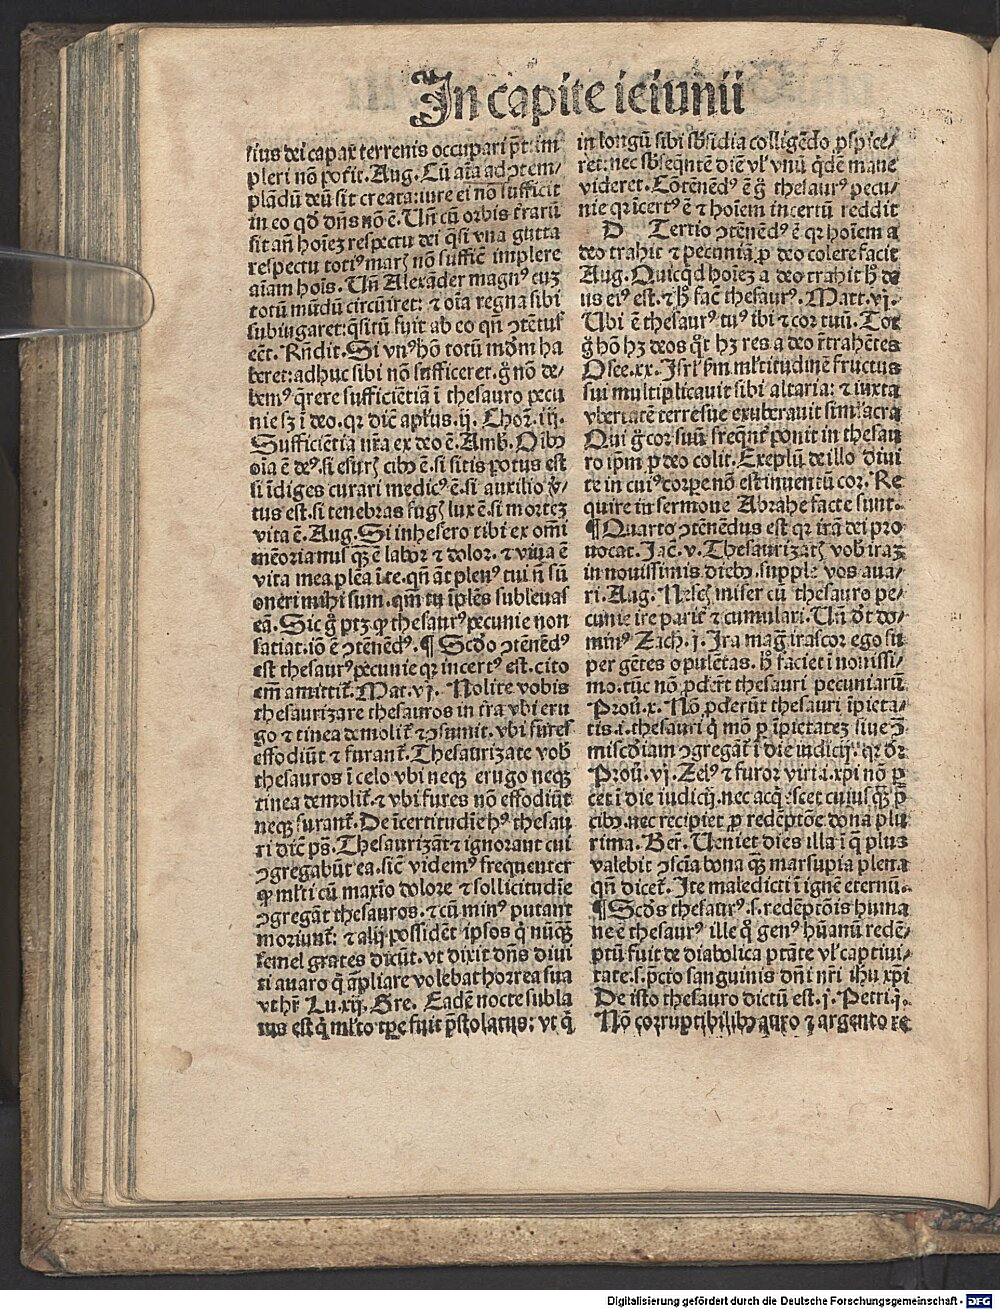 In capite ieiunii
rius dei capax terrenis occupari pt: im
pleri nō potit. Aug. Cū aīa ad ꝯtem-
plādū deū sit creata: iure ei nō sufficit
in eo qd dn̄s nō ē. Un̄ cū orbis t̄rarū
sit an̄ hoīez respectu dei q̄si vna gutta
respectu totiꝰ marꝭ nō suffic̄ implere
aīam hoīs. Un̄ Alexāder magnꝰ cuꝫ
totū mūdū circūiret: ⁊ oīa regna sibi
subiugaret: q̄sitū fuit ab eo qn̄ ꝯtētus
eēt. Rn̄dit. Si vnꝰ hō totū mūdm ha
beret: adhuc sibi nō sufficeret. g̊ nō de-
bemꝰ q̄rere sufficiētiā ī thesauro pecu
nie sꝫ ī deo. qꝛ dic̄ apl̄us. ij. Choꝝ. iij.
Sufficiētia nr̄a ex deo ē. Amb. Oib⁹
oīa ē deꝰ. si esurꝭ cib⁹ ē. si sitis potus est
si īdiges curari medicꝰ ē. si auxilio v̓-
tus est. si tenebras fugꝭ lux ē. si mortez
vita ē. Aug. Si inhesero tibi ex om̄i
mēoria nusꝙ̄ ē labor ⁊ dolor. ⁊ viua ē
vita mea plēa ī te. qn̄ āt plenꝰ tui n̄ sū
oneri mihi sum. qm̄ tu īplēs subleuas
eā. Sic g̊ ptꝫ ꝙ thesaurꝰ pecunie non
satiat. iō ē ꝯtēnēdꝰ. ¶ Scd̓o ꝯtēnēdꝰ
est thesaurꝰ pecunie qꝛ incertꝰ est. cito
em̄ amittit̄. Mat. vj. Nolite vobis
thesaurizare thesauros in t̄ra vbi eru
go ⁊ tinea demolit̄ ⁊ ꝯsumit. vbi fures
effodiūt ⁊ furant̄. Thesaurizate vob̄
thesauros ī celo vbi neqꝫ erugo neqꝫ
tinea demolit̄. ⁊ vbi fures nō effodiūt
neqꝫ furant̄. De īcertitudīe hꝰ thesau
ri dic̄ ps̄. Thesaurizāt ⁊ ignorant cui
ꝯgregabūt ea. sic̄ videmꝰ frequenter
ꝙ ml̄ti cū maxīo dolore ⁊ sollicitudīe
ꝯgregāt thesauros. ⁊ cū minꝰ putant
moriunt̄: ⁊ alij possidēt ipsos q̇ nūqꝫ
semel grates dicūt. vt dixit dn̄s diui
ti auaro q̇ āpliare volebat horrea sua
vt hr̄ Lu. xij. Gre. Eadē nocte subla
tus est q̇ ml̄to tpe fuit p̄stolatus: vt q̇
in longū sibi sb̄sidia colligēdo pspice-
ret: nec sb̄seq̄ntē diē vl̓ vnū q̄dē mane
videret. Cōtēnēdꝰ ē g̊ thesaurꝰ pecu-
nie qꝛ īcertꝰ ē ⁊ hoīem incertū reddit
D Tertio ꝯtēnēdꝰ ē qꝛ hoīem a
deo trahit ⁊ pecuniā ꝓ deo colere facit
Aug. Quicqd hoīez a deo trahit h̄ de
us eiꝰ est. ⁊ h̄ fac̄ thesaurꝰ. Matt. vj.
Ubi ē thesaurꝰ tuꝰ ibi ⁊ cor tuū. Tot
g̊ hō hꝫ deos qͦt hꝫ res a deo r̄trahētes
Osee. xx. Isrl̓ sm̄ ml̄titudinē fructus
sui multiplicauit sibi altaria: ⁊ iuxta
vbertatē terre sue exuberauit simlacra
Qui g̊ cor suū freq̄nt̄ ponit in thesau
ro ip̄m ꝓ deo colit. Exēplū de illo diui
te in cuiꝰ corpe nō est inuentū cor. Re
quire in sermone Abrahe facte sunt.
¶ Quarto ꝯtēnēdus est qꝛ irā dei pro
uocat. Iac̄. v. Thesaurizatꝭ vob̄ iraꝫ
in nouissimis dieb⁹. supple vos aua-
ri. Aug. Nescꝭ miser cū thesauro pe-
cunie ire parit̄ ⁊ cumulari. Un̄ dt do-
minꝰ Zach. j. Ira maḡ irascor ego su
per gētes opulētas. h̄ faciet ī nouissi-
mo. tūc nō ꝓdert̄ thesauri pecuniarū
Prou. x. Nō ꝓderūt thesauri īpieta-
tis. i. thesauri q̇ mō ꝑ īpietatez siue ꝯ̄
miscd̓iam ꝯgregāt̄ ī die iudicij. qꝛ dr̄
Prou. vj. Zelꝰ ⁊ furor viri. i. xpi nō ꝑ
cet ī die iudicij. nec acq̇escet cuiusqꝫ p̄
cib⁹. nec recipiet ꝓ redēptōe dona plu
rima. Ber. Ueniet dies illa ī q̄ plus
valebit ꝯscīa bona qꝫ marsupia plena
qn̄ dicet̄. Ite maledicti ī ignē eternū.
¶ Scd̓s thesaurꝰ. s. redēptōis huma
ne ē thesaurꝰ ille q̊ genꝰ hūanū redē-
ptū fuit de diabolica ptāte vl̓ captiui-
tate. s. p̄cio sanguinis dn̄i nr̄i ihu xpi
De isto thesauro dictū est. j. Petri. j.
Nō corruptibilib⁹ auro ⁊ argento re
Digitalisierung gefördert durch die Deutsche Forschungsgemeinschaft - DFG